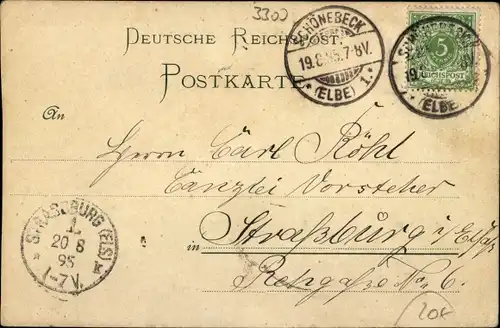 3300
DEUTSCHE REICHSPOST.
POSTKARTE
SCHÖNEBECK
19.8.95.7-8V.
* (ELBE) 1. *
5
REICHSPOST
(ELBE)
An
Herrn Carl Röhl
Canzlei Vorsteher
in Straßburg i/ Elsaß
No 6.
STRASSBURG (ELS)
1.
20 8
95
1-7V.
20f